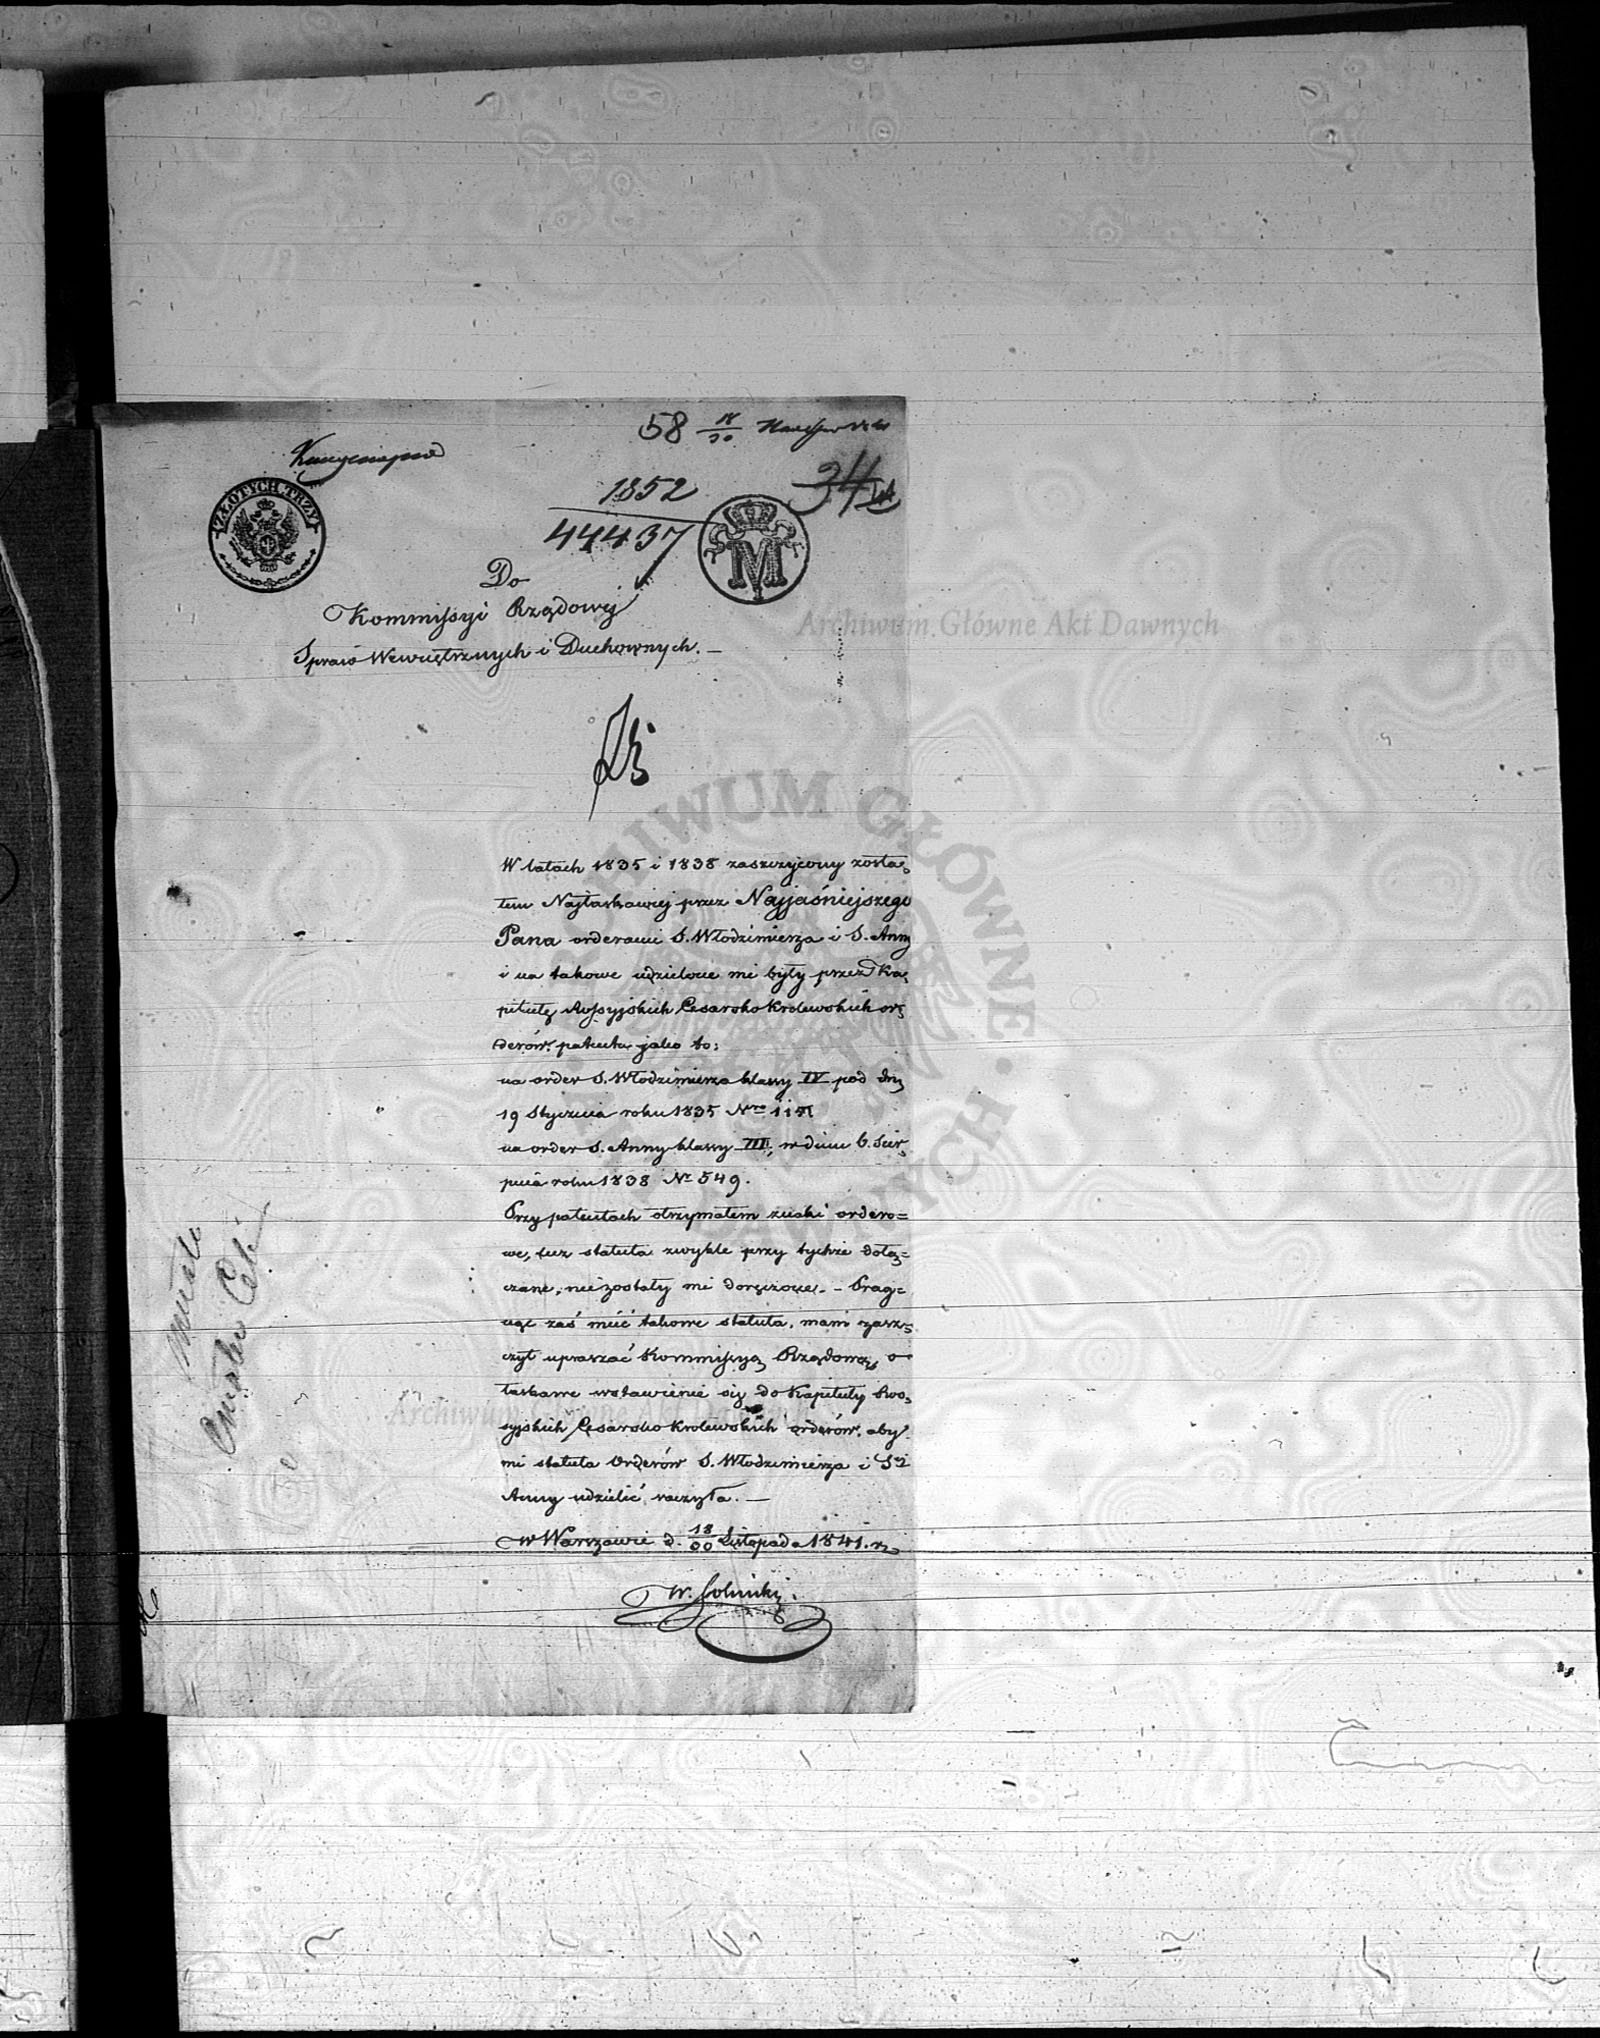 58 18/30
34
1852
44437
ZŁOTYCH TRZY
M
Do
Kommissyi Rządowej
Spraw Wewnętrznych i Duchownych. —
W latach 1835 i 1838 zaszczycony zosta=
łem Najłaskawiej przez Najjaśniejszego
Pana orderami S. Włodzimierza i S. Anny
i na takowe udzielone mi były przez Ka=
pitułę Rossyjskich Cesarsko Królewskich or=
derów patenta jako to:
na order S. Włodzimierza klassy IV pod dn.
19 Stycznia roku 1835 Nro
na order S. Anny klassy III, w dniu 6. Sier=
pnia roku 1838 Nr 549.
Przy patentach otrzymałem znaki ordero=
we, lecz statuta zwykle przy tychże dołą=
czane, nie zostały mi doręczone. – Prag=
nąc zaś mieć takowe statuta, mam zasz=
czyt upraszać Kommissyą Rządową, o
łaskawe wstawienie się do Kapituły Ros=
syjskich Cesarsko Królewskich orderów, aby
mi statuta Orderów S. Włodzimierza i Sej
Anny udzielić raczyła. —
w Warszawie d. 18/00 Listopada 1841. r.
W. Solnicki
Archiwum Główne Akt Dawnych
ARCHIWUM GŁÓWNE AKT DAWNYCH
Archiwum Główne Akt Dawnych